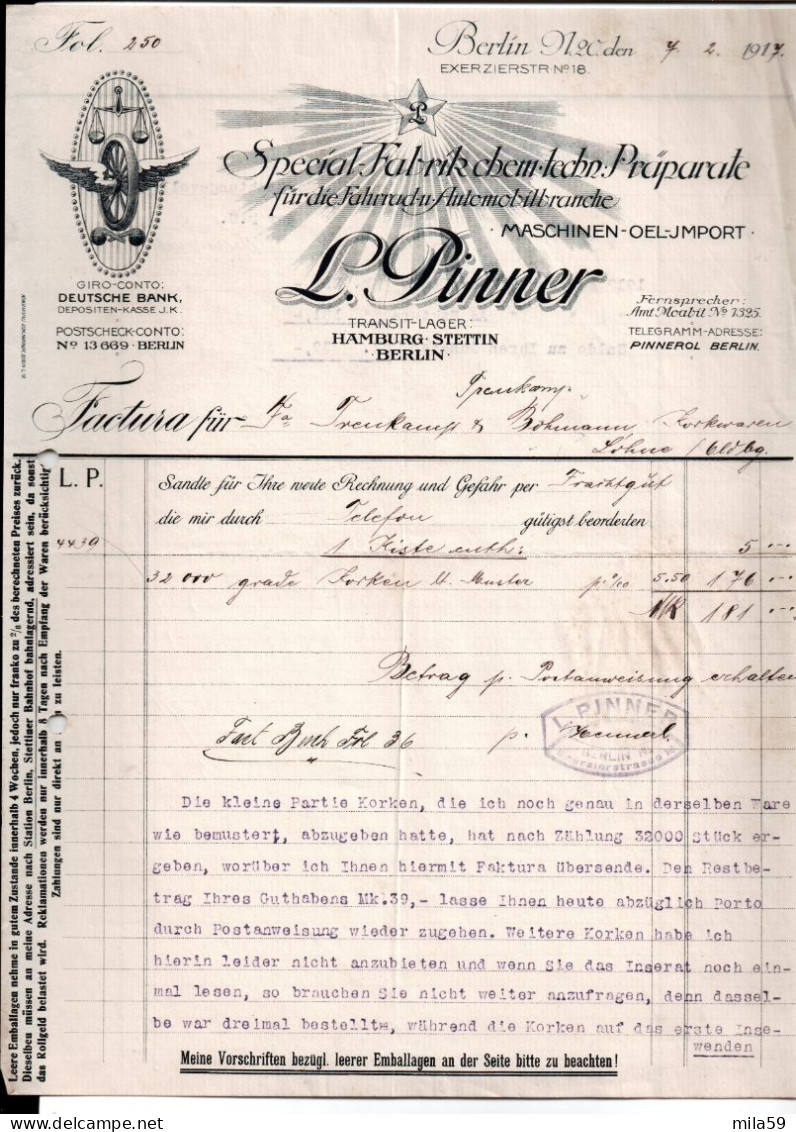 Fol. 250
Berlin N.20. den 7. 2. 1917.
EXERZIERSTR. No 18.
L
Special-Fabrik chem.-techn. Präparate
für die Fahrrad- u. Automobilbranche
· MASCHINEN-OEL-JMPORT ·
L. Pinner
GIRO-CONTO:
DEUTSCHE BANK,
DEPOSITEN-KASSE J.K.
POSTSCHECK-CONTO:
No 13669 · BERLIN
TRANSIT-LAGER:
HAMBURG · STETTIN
· BERLIN ·
Fernsprecher:
Amt Moabit No 7325.
TELEGRAMM-ADRESSE:
PINNEROL BERLIN.
Spenkamp
Factura für Fa Trenkamp & Böhmann, Korkwaren
Lohne / Oldbg.
L. P.
Sandte für Ihre werte Rechnung und Gefahr per Frachtgut
die mir durch Telefon gütigst beorderten
4439 1 Kiste enth: 5 ...
32000 grade Korken lt. Muster p. %00 5.50 176 ...
MK 181 ...
Betrag p. Postanweisung erhalten
Fact Buch Fol 36
p.
L. PINNER
BERLIN N.
Exerzierstrasse 18
Die kleine Partie Korken, die ich noch genau in derselben Ware
wie bemustert, abzugeben hatte, hat nach Zählung 32000 Stück er-
geben, worüber ich Ihnen hiermit Faktura übersende. Den Restbe-
trag Ihres Guthabens Mk.39,- lasse Ihnen heute abzüglich Porto
durch Postanweisung wieder zugehen. Weitere Korken habe ich
hierin leider nicht anzubieten und wenn Sie das Inserat noch ein-
mal lesen, so brauchen Sie nicht weiter anzufragen, denn dassel-
be war dreimal bestellt, während die Korken auf das erste Inse-
wenden
Meine Vorschriften bezügl. leerer Emballagen an der Seite bitte zu beachten!
Leere Emballagen nehme in gutem Zustande innerhalb 4 Wochen, jedoch nur franko zu 2/3 des berechneten Preises zurück.
Dieselben müssen an meine Adresse nach Station Berlin, Stettiner Bahnhof bahnlagernd, adressiert sein, da sonst
das Rollgeld belastet wird. Reklamationen werden nur innerhalb 8 Tagen nach Empfang der Waren berücksichtigt
Zahlungen sind nur direkt an zu leisten.
mila59